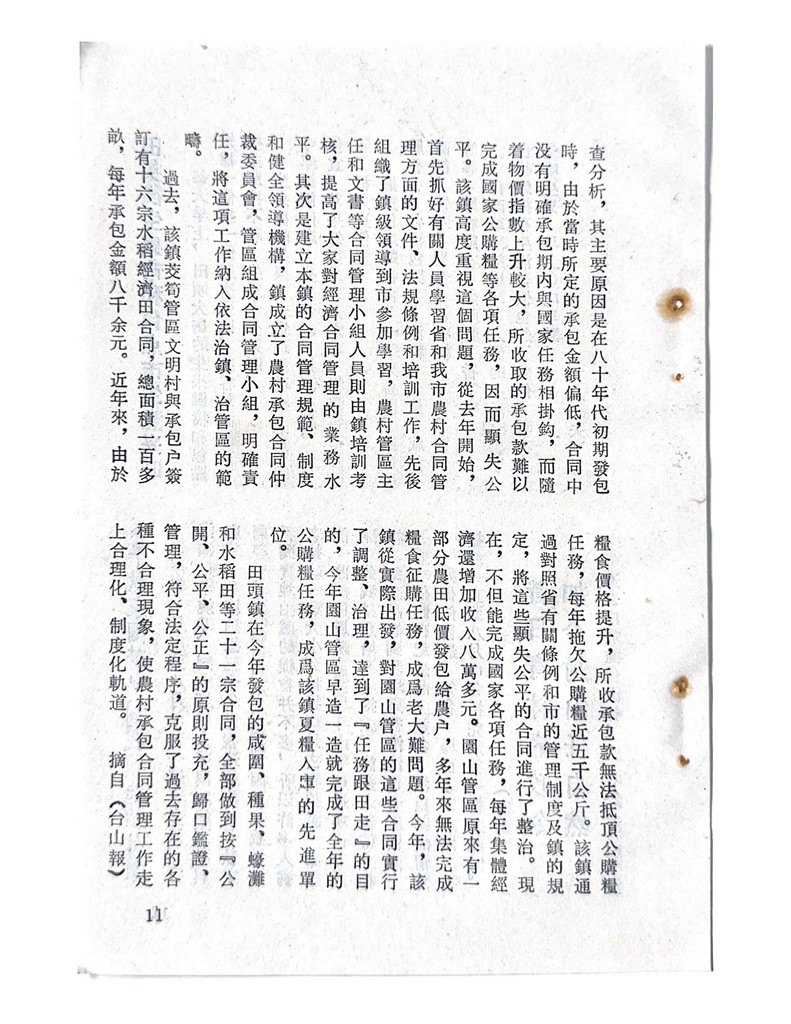 查分析，其主要原因是在八十年代初期發包
時，由於當時所定的承包金額偏低，合同中
没有明確承包期内與國家任務相掛鈎，而隨
着物價指數上升較大，所收取的承包款難以
完成國家公購糧等各項任務，因而顯失公
平。該鎮高度重視這個問題，從去年開始，
首先抓好有關人員學習省和我市農村合同管
理方面的文件、法規條例和培訓工作，先後
組織了鎮級領導到市參加學習，農村管區主
任和文書等合同管理小組人員則由鎮培訓考
核，提高了大家對經濟合同管理的業務水
平。其次是建立本鎮的合同管理規範、制度
和健全領導機構，鎮成立了農村承包合同仲
裁委員會，管區組成合同管理小組，明確責
任，將這項工作納入依法治鎮、治管區的範
疇。
過去，該鎮茭筍管區文明村與承包户簽
訂有十六宗水稻經濟田合同，總面積一百多
畝，每年承包金額八千余元。近年來，由於
糧食價格提升，所收承包款無法抵頂公購糧
任務，每年拖欠公購糧近五千公斤。該鎮通
過對照省有關條例和市的管理制度及鎮的規
定，將這些顯失公平的合同進行了整治。現
在，不但能完成國家各項任務，每年集體經
濟還增加收入八萬多元。園山管區原來有一
部分農田低價發包給農户，多年來無法完成
糧食征購任務，成爲老大難問題。今年，該
鎮從實際出發，對園山管區的這些合同實行
了調整、治理，達到了『任務跟田走』的目
的，今年園山管區早造一造就完成了全年的
公購糧任務，成爲該鎮夏糧入庫的先進單
位。
田頭鎮在今年發包的咸圍、種果、蠔灘
和水稻田等二十一宗合同，全部做到按『公
開、公平、公正』的原則投充，歸口鑑證、
管理，符合法定程序，克服了過去存在的各
種不合理現象，使農村承包合同管理工作走
上合理化、制度化軌道。　摘自《台山報》
11